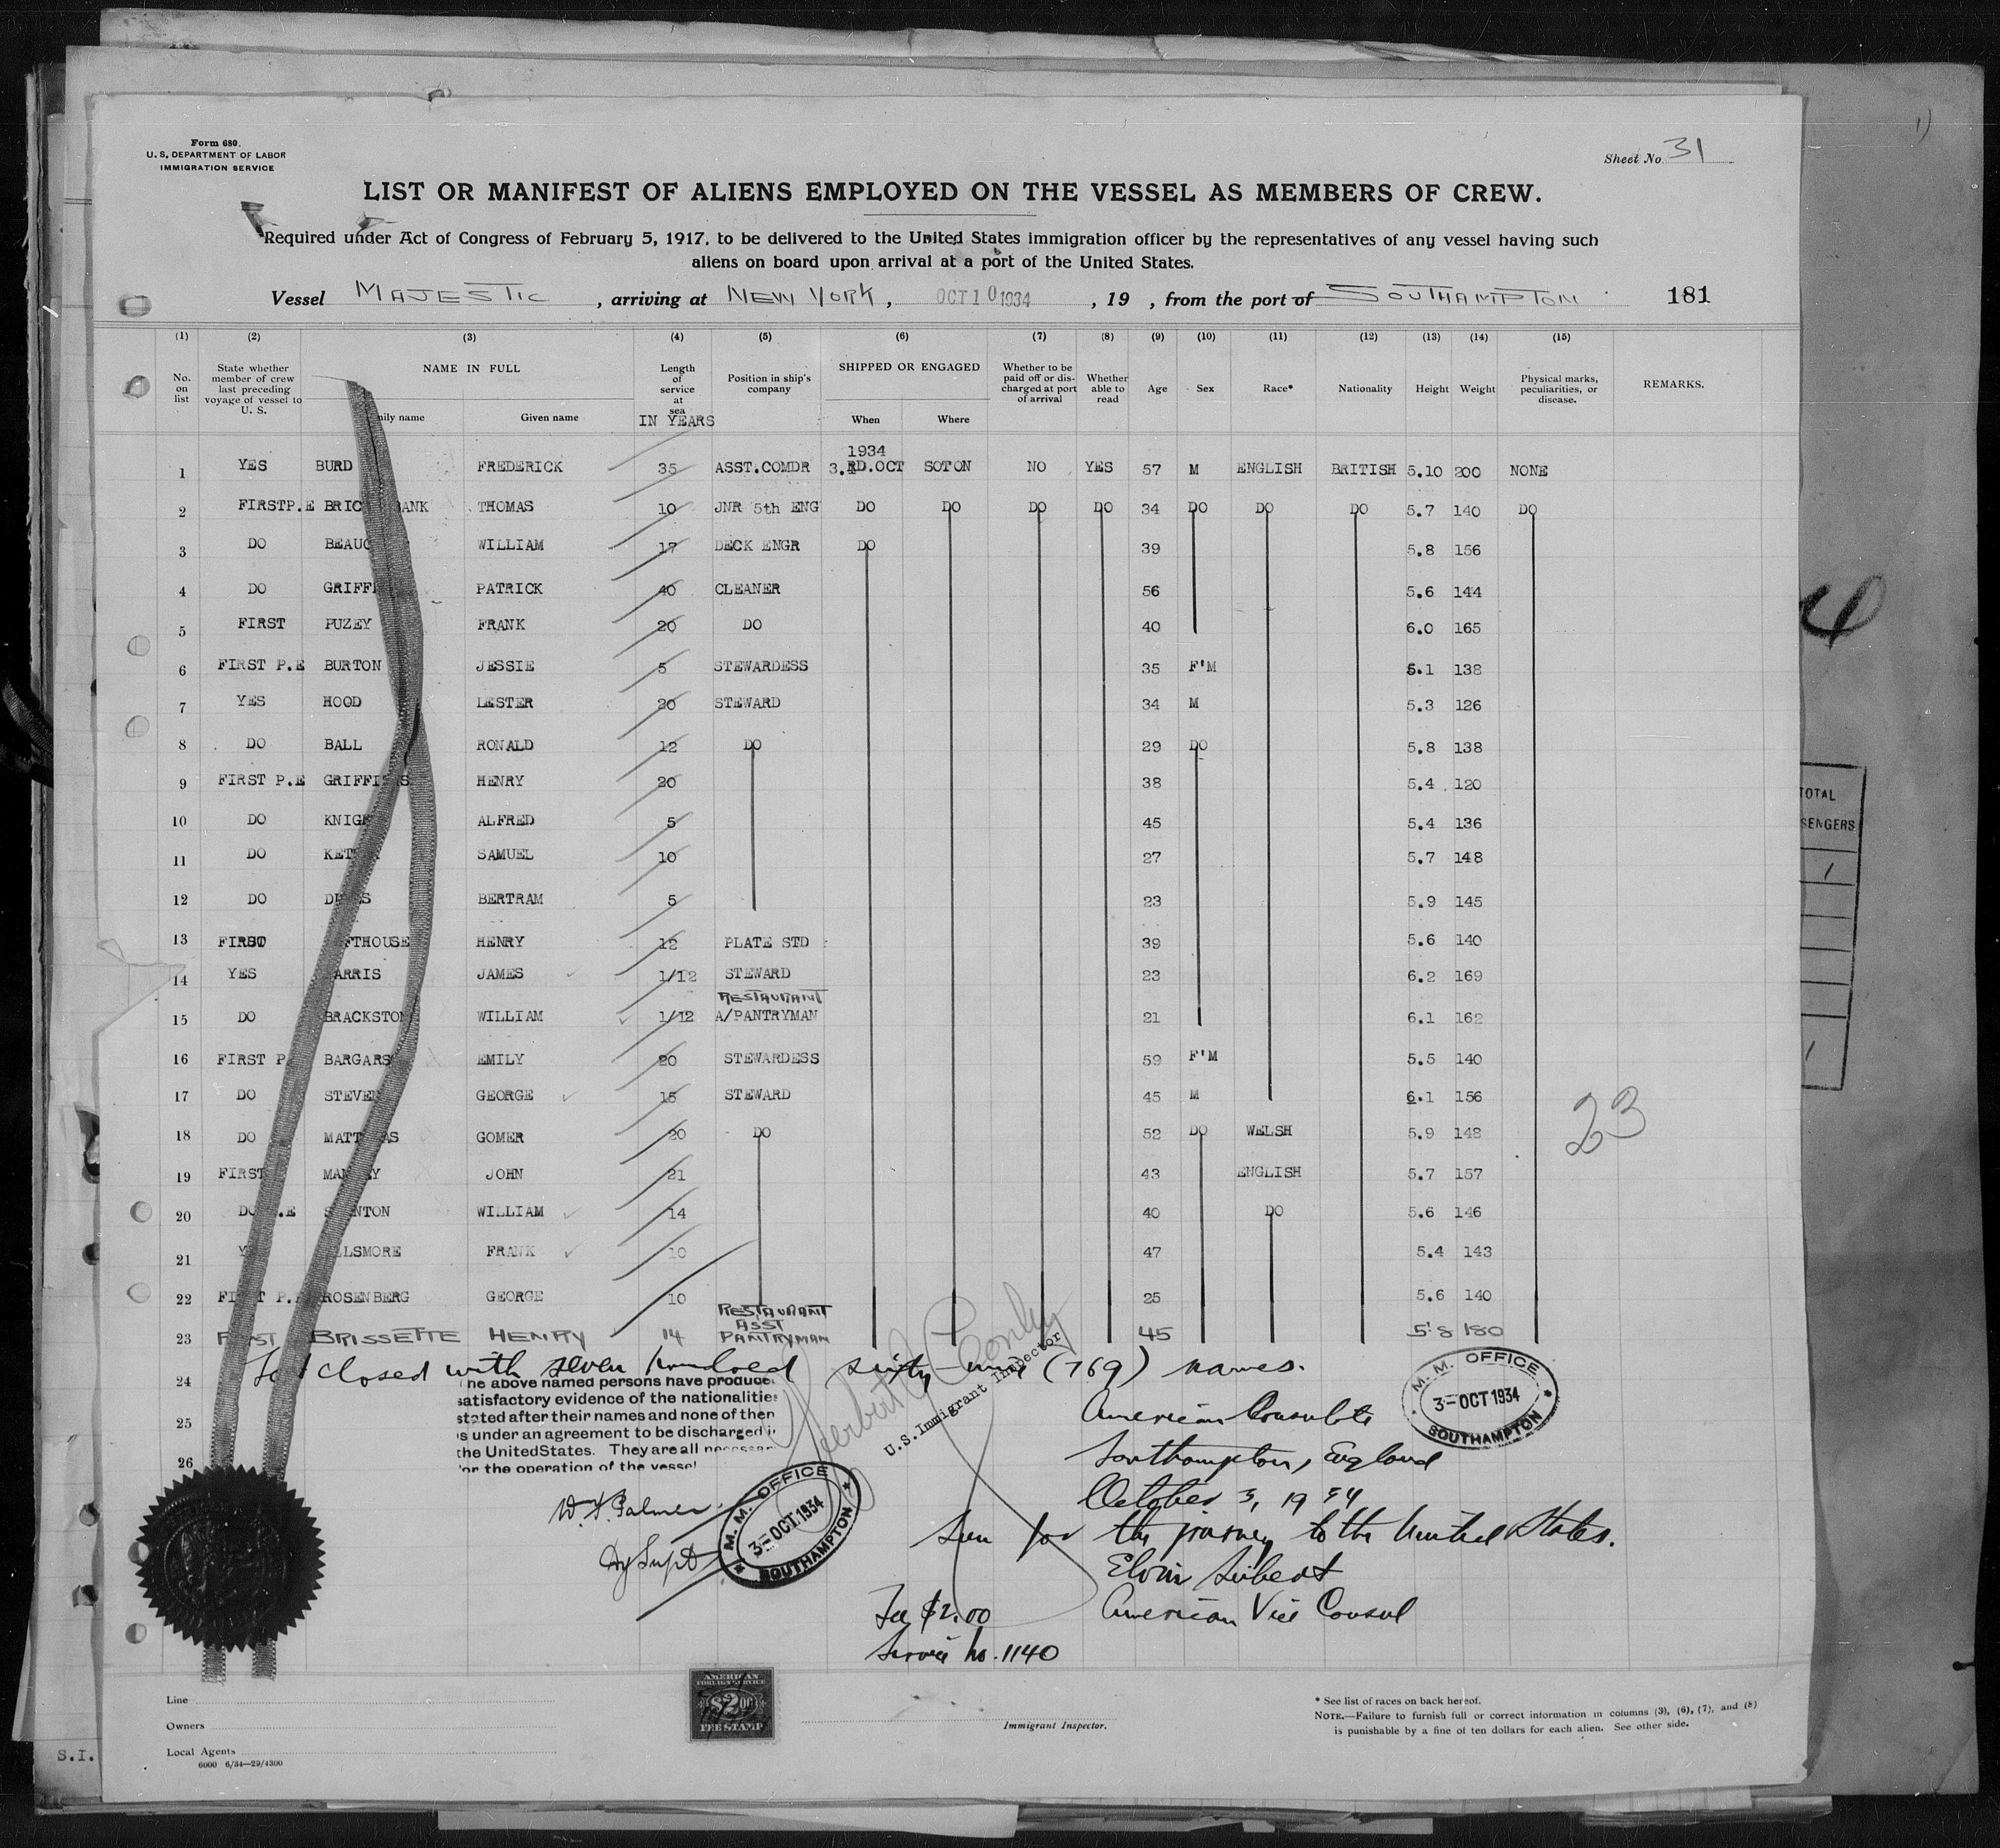 Form 680.
U. S. DEPARTMENT OF LABOR
IMMIGRATION SERVICE
Sheet No. 31
LIST OR MANIFEST OF ALIENS EMPLOYED ON THE VESSEL AS MEMBERS OF CREW.
Required under Act of Congress of February 5, 1917, to be delivered to the United States immigration officer by the representatives of any vessel having such
aliens on board upon arrival at a port of the United States.
Vessel MAJESTIC, arriving at NEW YORK, OCT 10 1934, 19 , from the port of SOUTHAMPTON 181
(1) (2) (3) (4) (5) (6) (7) (8) (9) (10) (11) (12) (13) (14) (15)
No. on list State whether member of crew last preceding voyage of vessel to U. S. NAME IN FULL Length of service at sea IN YEARS Position in ship's company SHIPPED OR ENGAGED Whether to be paid off or discharged at port of arrival Whether able to read Age Sex Race* Nationality Height Weight Physical marks, peculiarities, or disease. REMARKS.
mily name Given name When Where
1934
1 YES BURD FREDERICK 35 ASST.COMDR 3.RD.OCT SOTON NO YES 57 M ENGLISH BRITISH 5.10 200 NONE
2 FIRSTP.E BRIC ANK THOMAS 10 JNR 5th ENG DO DO DO DO 34 DO DO DO 5.7 140 DO
3 DO BEAUC WILLIAM 17 DECK ENGR DO 39 5.8 156
4 DO GRIFF PATRICK 40 CLEANER 56 5.6 144
5 FIRST PUZEY FRANK 20 DO 40 6.0 165
6 FIRST P.E BURTON JESSIE 5 STEWARDESS 35 F'M 5.1 138
7 YES HOOD LESTER 20 STEWARD 34 M 5.3 126
8 DO BALL RONALD 12 DO 29 DO 5.8 138
9 FIRST P.E GRIFFI S HENRY 20 38 5.4 120
10 DO KNIGH ALFRED 5 45 5.4 136
11 DO KET SAMUEL 10 27 5.7 148
12 DO D S BERTRAM 5 23 5.9 145
13 FIRST FTHOUSE HENRY 12 PLATE STD 39 5.6 140
14 YES ARRIS JAMES 1/12 STEWARD 23 6.2 169
RESTAURANT
15 DO BRACKSTON WILLIAM 1/12 A/PANTRYMAN 21 6.1 162
16 FIRST P BARGARS EMILY 20 STEWARDESS 59 F'M 5.5 140
17 DO STEVEN GEORGE 15 STEWARD 45 M 6.1 156
18 DO MATT AS GOMER 20 DO 52 DO WELSH 5.9 148
23
19 FIRST MAN Y JOHN 21 43 ENGLISH 5.7 157
20 DO .E S NTON WILLIAM 14 40 DO 5.6 146
21 Y LLSMORE FRANK 10 47 5.4 143
22 FI T P. ROSENBERG GEORGE 10 25 5.6 140
RESTAURANT
ASST
23 FIRST BRISSETTE HENRY 14 PANTRYMAN 45 5'8 180
24 closed with seven hundred sixty-nine (769) names.
he above named persons have produce
satisfactory evidence of the nationalities
stated after their names and none of then
s under an agreement to be discharged i
the United States. They are all necessar
or the operation of the vessel
25
26
Herbert J Conley
U.S. Immigrant Inspector
American Consulate
Southampton, England
October 3, 1934
M. M. OFFICE
3-OCT 1934
SOUTHAMPTON
W. A. Palmer
Dy Supt
M. M. OFFICE
3-OCT 1934
SOUTHAMPTON
Seen for the journey to the United States.
Elvin Seibert
American Vice Consul
Fee $2.00
Service No. 1140
AMERICAN
FOREIGN SERVICE
$2.00
FEE STAMP
Line
Owners
Local Agents
6000 6/34—29/4300
Immigrant Inspector.
* See list of races on back hereof.
NOTE.—Failure to furnish full or correct information in columns (3), (6), (7), and (8)
is punishable by a fine of ten dollars for each alien. See other side.
S.I.
TOTAL
SENGERS
1
1